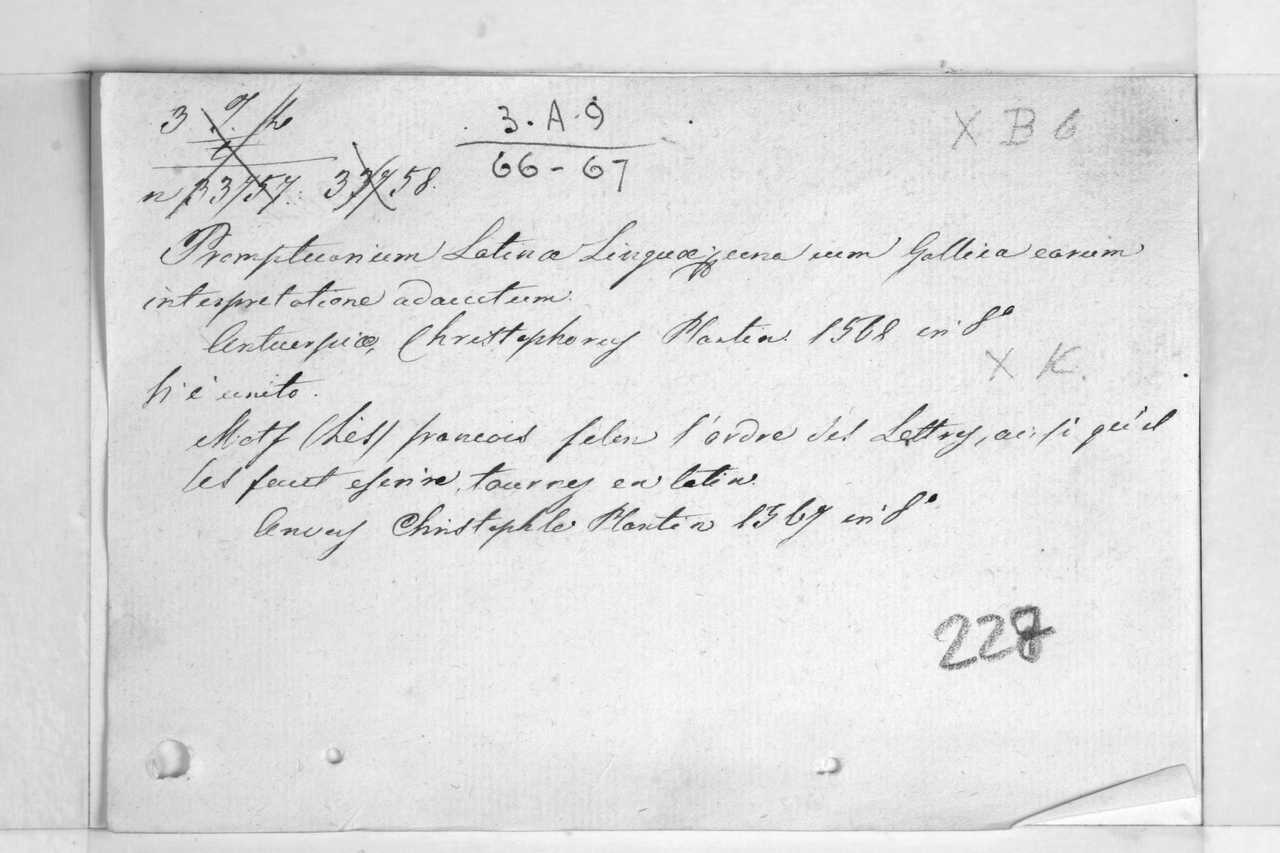 3. A. 9
66 - 67
X B 6
n 33757. 33758.
Promptuarium Latinæ Linguæ; una cum Gallica earum
interpretatione adauctum.
Antuerpiæ, Christophorus Plantin. 1568 in 8°
X K.
h'è unito.
Mots (Les) francois selon l'ordre des Lettres, ainsi qu'il
les faut escrire, tournes en latin.
Anvers Christophle Plantin 1567 in 8°